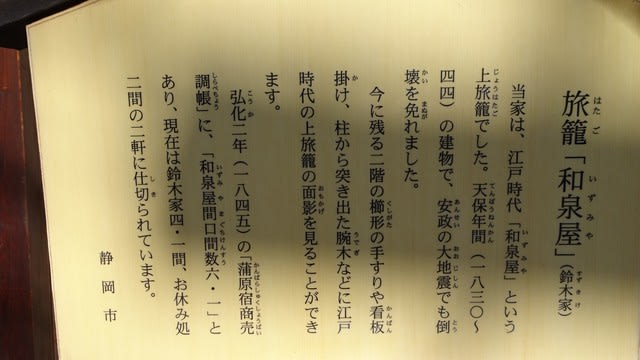 旅籠「和泉屋」(鈴木家)
当家は、江戸時代「和泉屋」という
上旅籠でした。天保年間(一八三〇〜
四四)の建物で、安政の大地震でも倒
壊を免れました。
今に残る二階の櫛形の手すりや看板
掛け、柱から突き出た腕木などに江戸
時代の上旅籠の面影を見ることができ
ます。
弘化二年(一八四五)の「蒲原宿商売
調帳」に、「和泉屋間口間数六・一」と
あり、現在は鈴木家四・一間、お休み処
二間の二軒に仕切られています。
静岡市